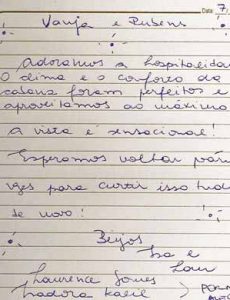 Data 7
Vanja e Rubens
Adoramos a hospitalidad
O clima e o conforto da
cabana foram perfeitos e
aproveitamos ao máximo
a vista é sensacional!
Esperamos voltar vári
vezes para curtir isso tudo
de novo!
Beijos
Isa e
Lau
Laurence Gomes
Isadora Kalil